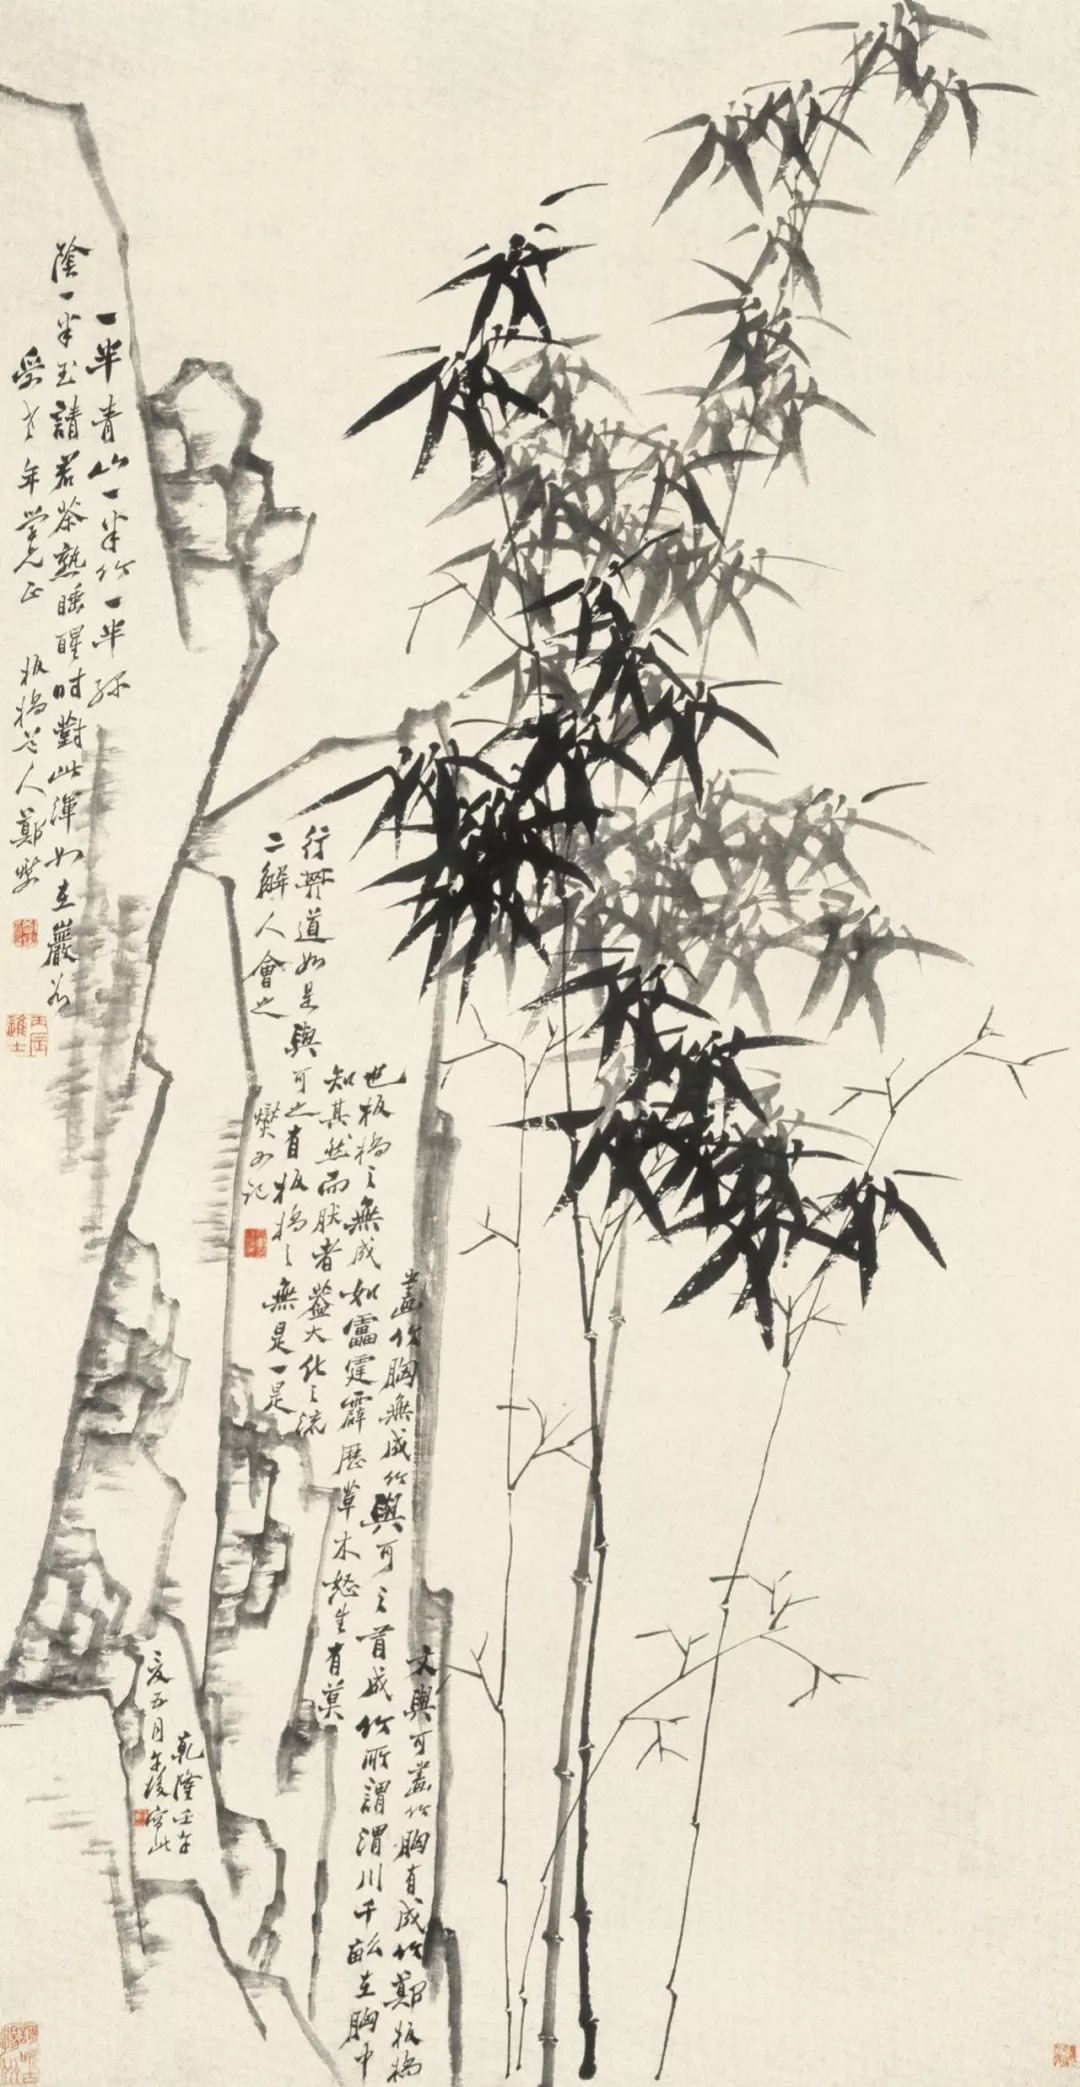 一半青山一半竹一半綠
陰一半玉請君茶熟睡醒時對此渾如在巖谷
受老年學兄正 板橋老人鄭燮
丙辰進士
文與可畫竹胸有成竹鄭板橋
畫竹胸無成竹與可之有成竹所謂渭川千畝在胸中
也板橋之無成如雷霆霹歷草木怒生有莫
知其然而然者蓋大化之流
行其道如是與可之有板橋之無是一是
二解人會之 燮又記
乾隆壬午
夏五月午後寫此